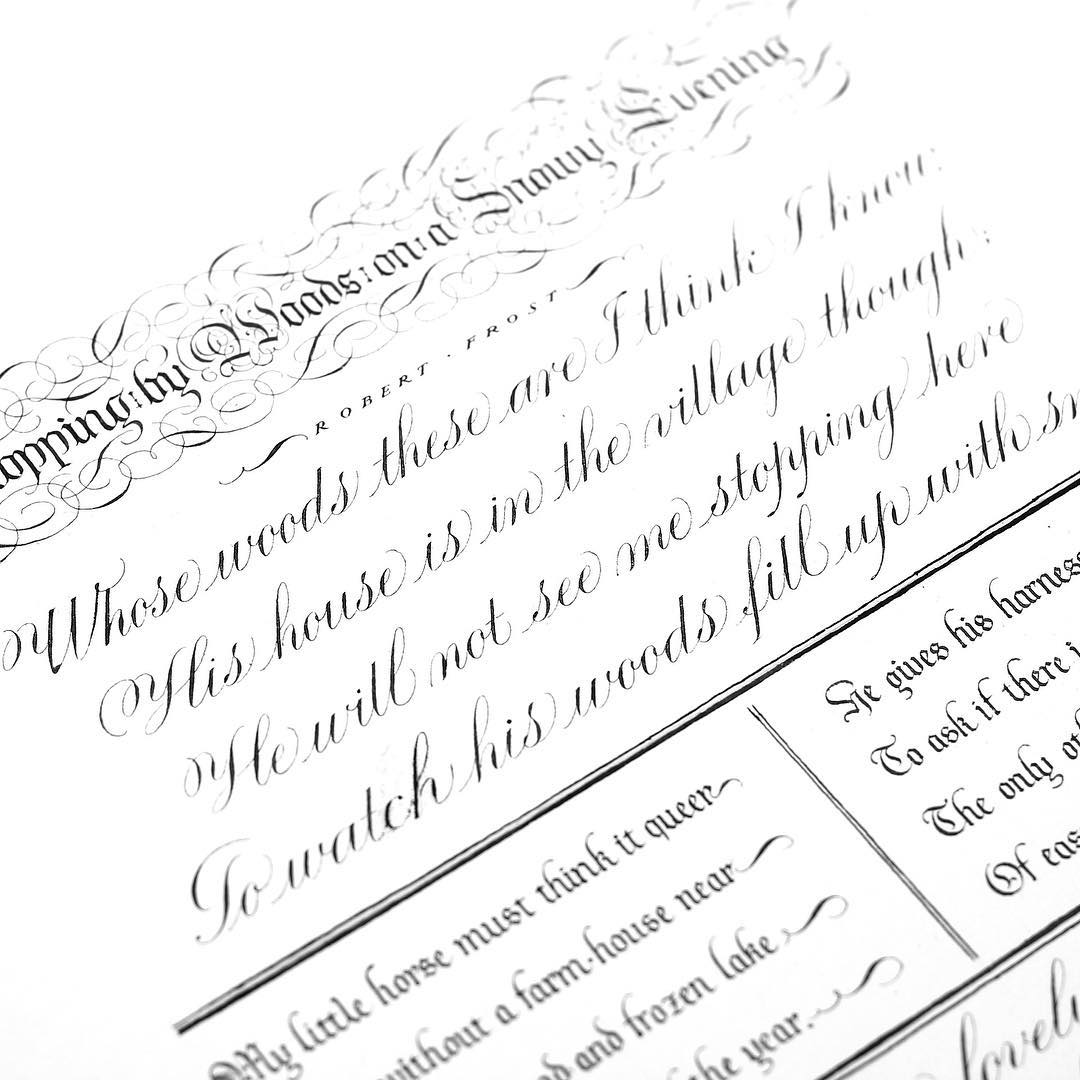 opping by Woods on a Snowy Evening
ROBERT · FROST
Whose woods these are I think I know:
His house is in the village though;
He will not see me stopping here
To watch his woods fill up with sn
My little horse must think it queer
without a farm-house near
and frozen lake
the year.
He gives his harness
To ask if there i
The only ot
Of eas
lovely